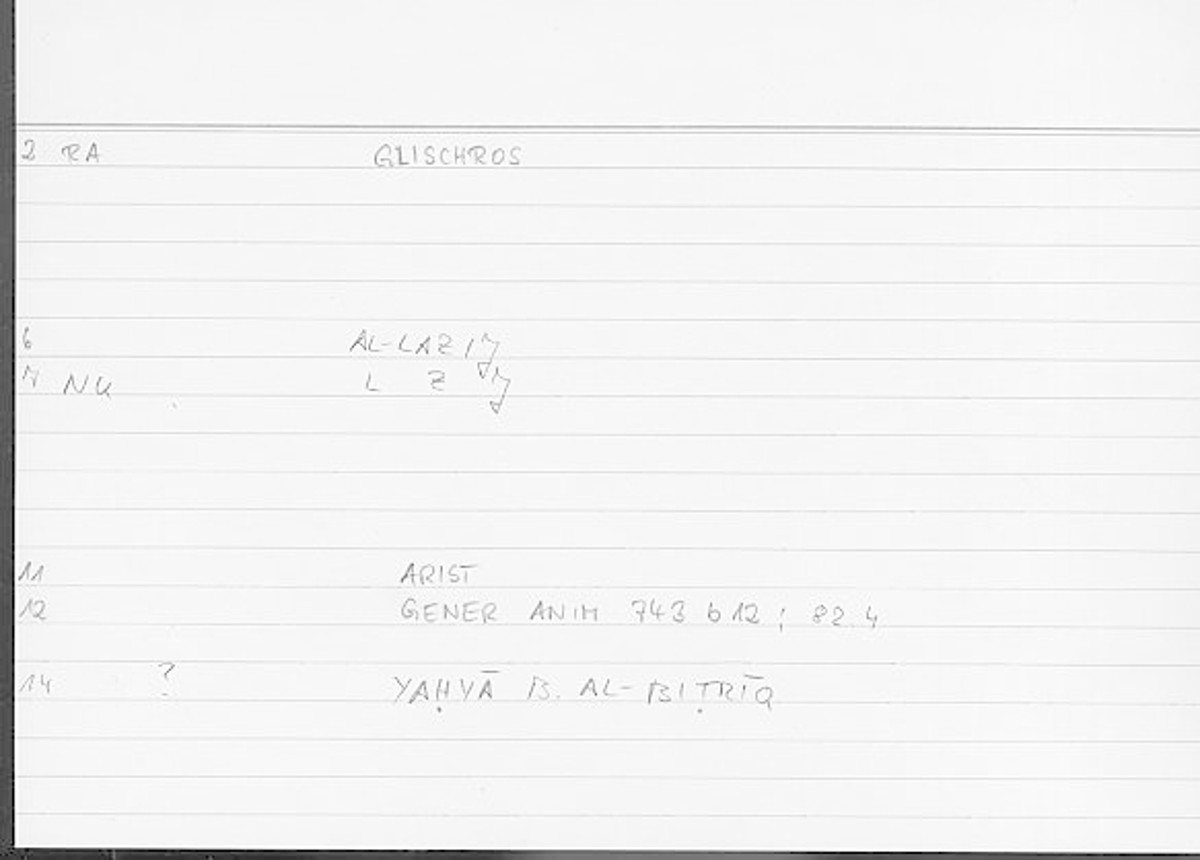 2 RA GLISCHROS
6 AL-LAZIJ
7 NU L Z J
11 ARIST
12 GENER ANIM 743 b 12 ; 82.4
14 ? YAḤYĀ B. AL-BIṬRĪQ